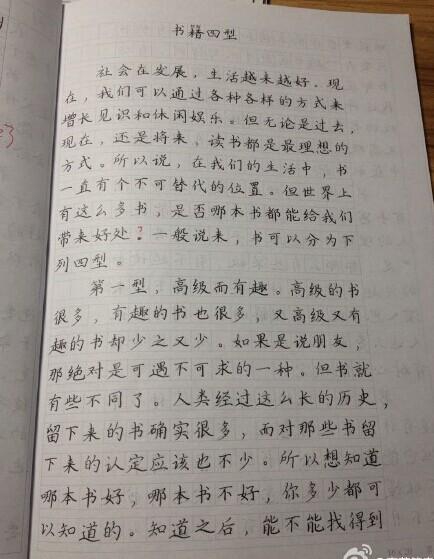 书籍四型
社会在发展，生活越来越好。现
在，我们可以通过各种各样的方式来
增长见识和休闲娱乐。但无论是过去，
现在，还是将来，读书都是最理想的
方式。所以说，在我们的生活中，书
一直有个不可替代的位置。但世界上
有这么多书，是否哪本书都能给我们
带来好处？一般说来，书可以分为下
列四型。
第一型，高级而有趣。高级的书
很多，有趣的书也很多，又高级又有
趣的书却少之又少。如果是说朋友，
那绝对是可遇不可求的一种。但书就
有些不同了。人类经过这么长的历史，
留下来的书确实很多，面对那些书留
下来的认定应该也不少。所以想知道
哪本书好，哪本书不好，你多少都可
以知道的。知道之后，能不能找得到